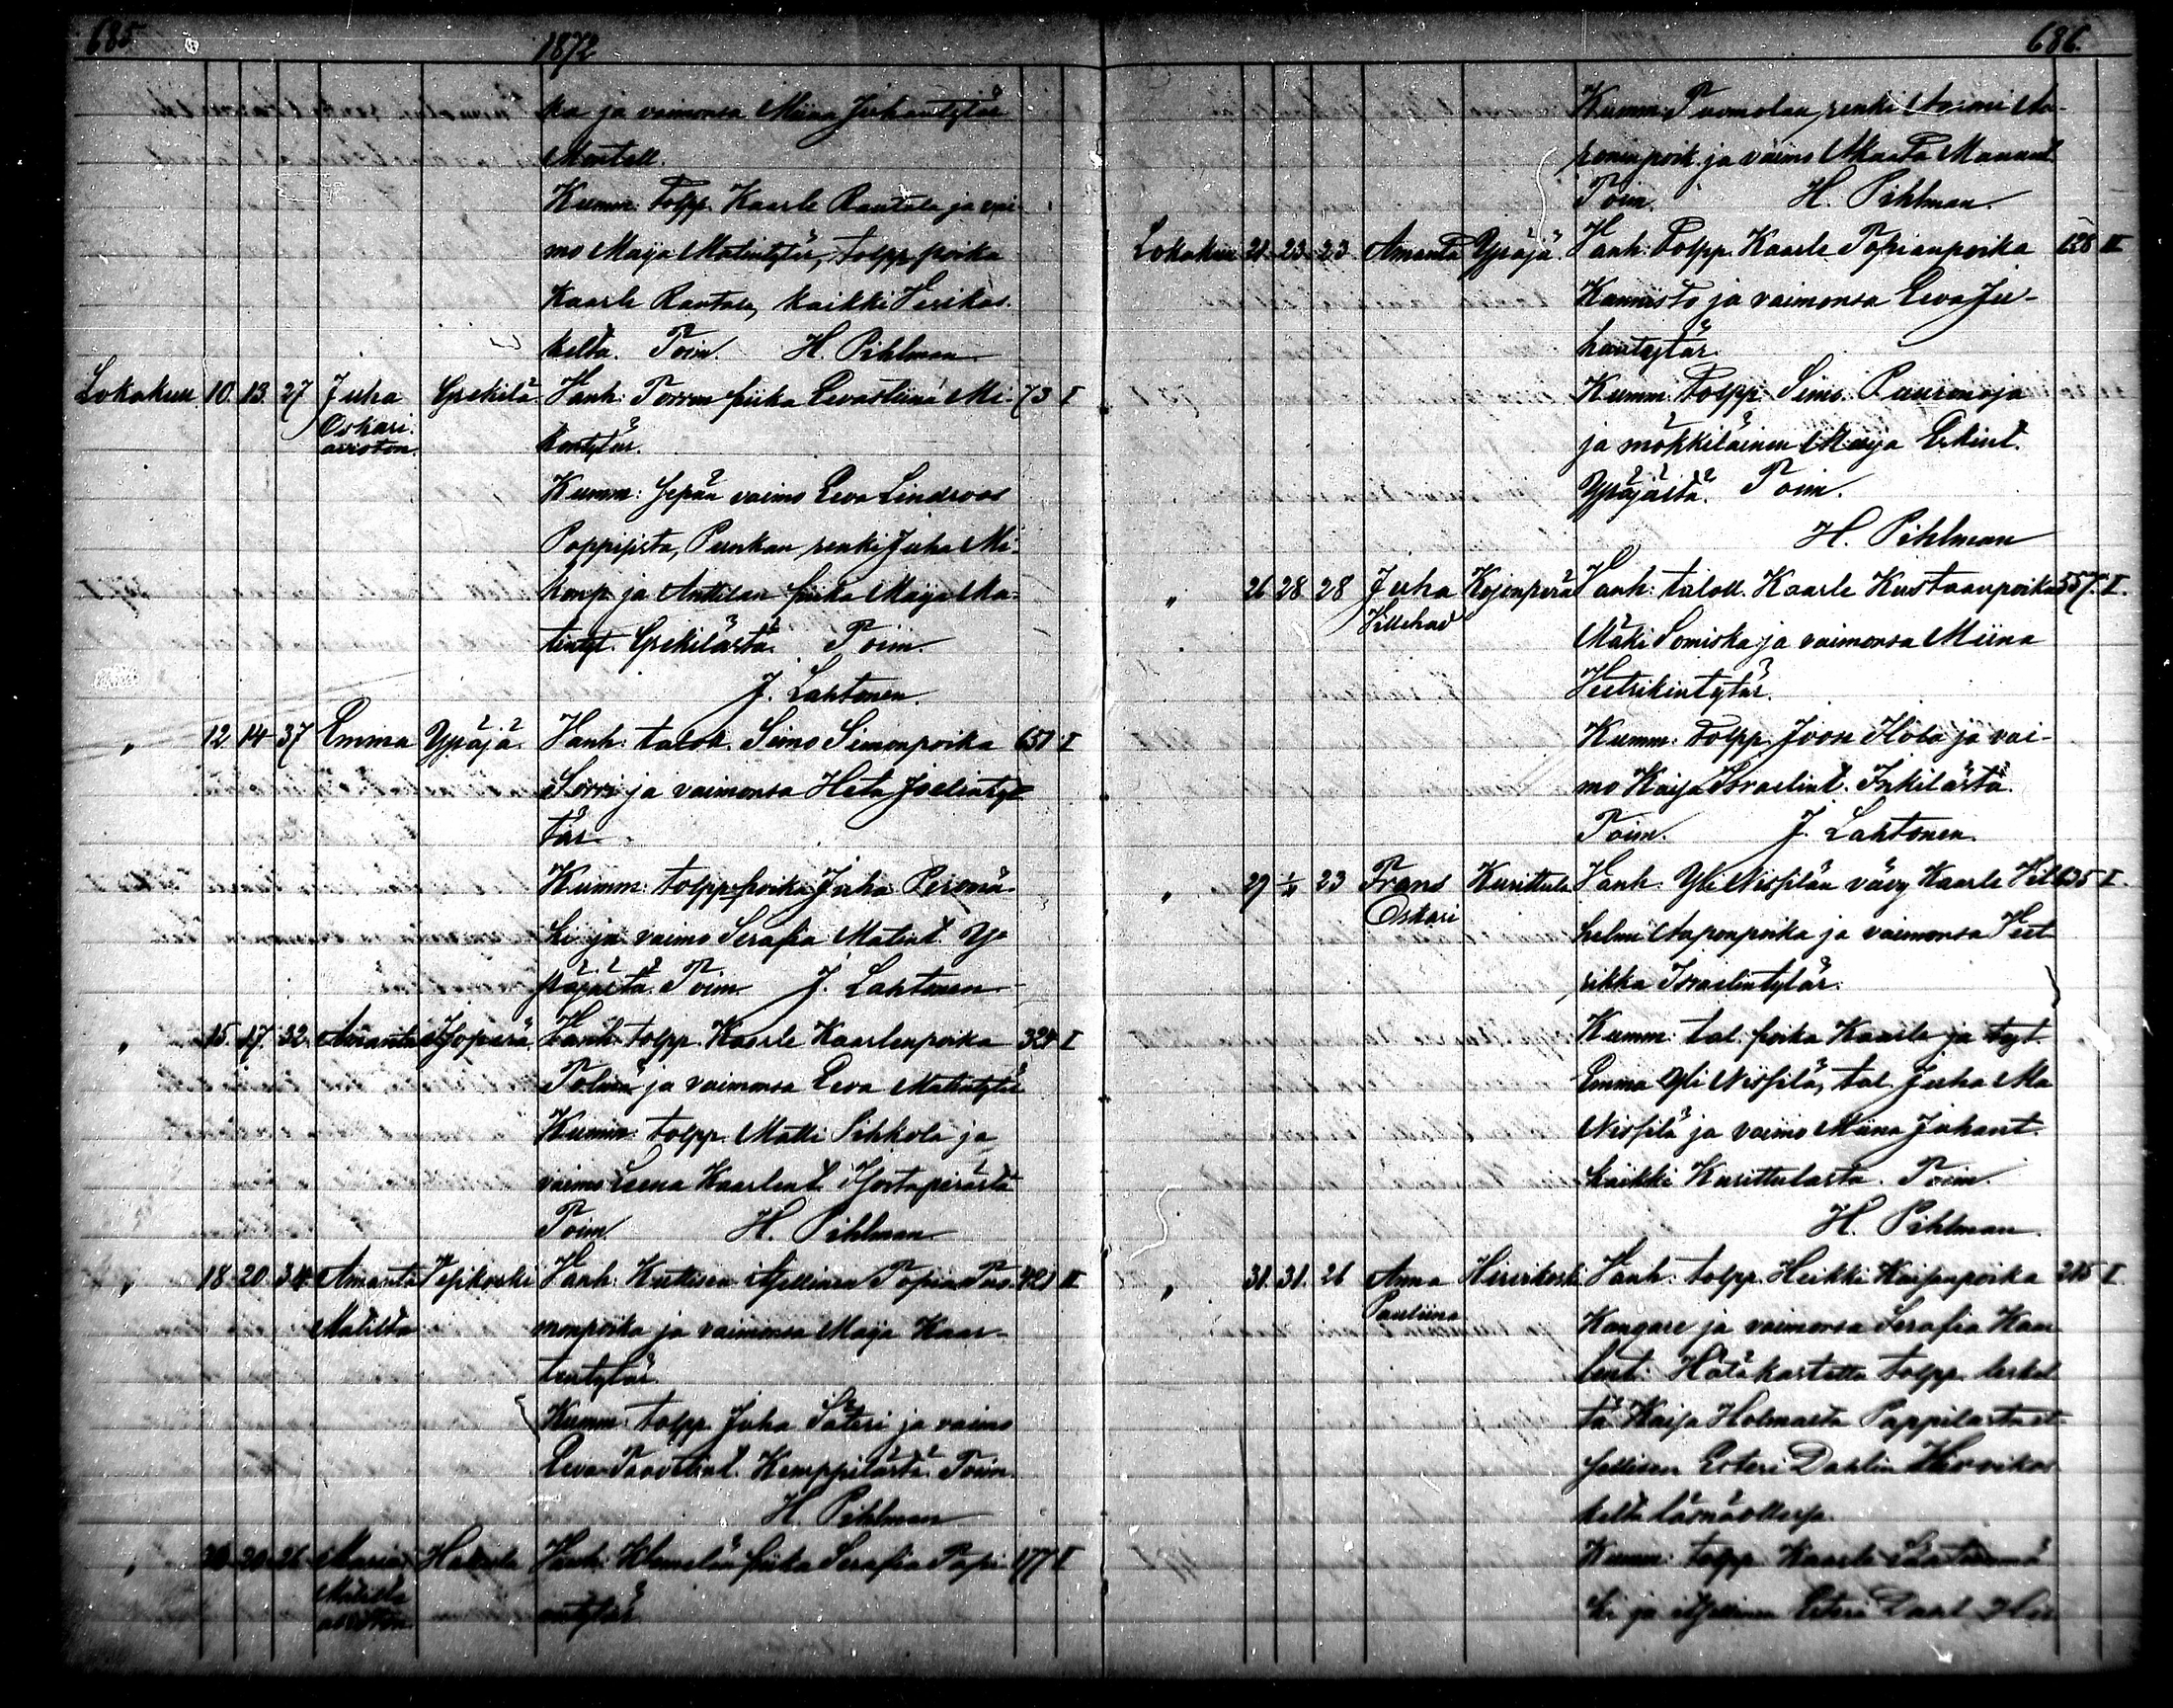 685
1872
ka ja vaimonsa Miina Juhantytär
Mantell.
Kumm. Tolpp. Kaarle Rantala ja vai
mo Maija Matintytär, tolpp. poika
Kaarle Rantala, kaikki
kelta. Toim. H. Pihlman
Lokakuu 10. 13. 27 Juha Oskari avioton. Vanh: piika Evastiina Mi- 73 I
kontytär.
Kumm: Sepän vaimo Eeva Lindroos
renki Juha Mi-
konp. ja Anttilan piika Maija Ma-
tintyt. Toim.
J. Lahtonen.
" 12 14 37 Emma Ypäjä. Vanh: talok. Simo Simonpoika 651 I
Sorri ja vaimonsa Heta Joelinty
tär.
Kumm: tolpp. poika Juha Peromä
ki ja vaimo Serafia Matint. Y-
päjästä. Toim. J. Lahtonen
" 15. 17. 32. Amanta Vanh. tolpp. Kaarle Kaarlenpoika 324 I
ja vaimonsa Eeva Matintytär
Kumm: tolpp. Matti Sihkola ja
vaimo Leena Kaarlent.
Toim. H. Pihlman
" 18 20 34 Amanta Matilta Vanh: itsellinen Topias 421 II
monpoika ja vaimonsa Maija Kaar-
lentytär.
Kumm: tolpp. Juha Säteri ja vaimo
Eeva Taavetint. Kemppilästä. Toim.
H. Pihlman
" 20 20 26 Maria Matilta avioton. Vanh: piika Serafia Topi- 177 I
antytär
686.
Kumm: Tuomolan renki Aa-
ronenpoik. ja vaimo
Toim. H. Pihlman.
Lokakuu 21 23 23 Amanta Ypäjä Vanh: Tolpp. Kaarle Topianpoika 628 II
Kannisto ja vaimonsa Eeva Ju-
hantytär.
Kumm: Tolpp. Simo Pauronoja
ja mökkiläinen Maija Erkint.
Ypäjästä. Toim.
H. Pihlman
" 26 28 28 Juha Villehad Kojonperä Vanh: taloll. Kaarle Kustaanpoika 557. I.
Mäki Lomiska ja vaimonsa Miina
Heetrikintytär.
Kumm: tolpp. Joose Ilola ja vai-
mo Kaija Israelint. Inkilästä.
Toim. J. Lahtonen.
" 29 23 Frans Oskari Kurittula Vanh. Yli Nissilän vävy Kaarle Vil 635 I.
helmi Aaponpoika ja vaimonsa Heet
rikka Israelintytär.
Kumm: tal. poika Kaarle ja tyt
Emma Yli Nissilä, tal. Juha Ala
Nissilä ja vaimo Miina Juhant.
kaikki Kurittulasta. Toim.
H. Pihlman.
" 31. 31. 26 Anna Pauliina Hirvikoski Vanh: tolpp. Heikki Kaisanpoika 215 I
Kangare ja vaimonsa Serafia Kaar
lent: Hätäkastettu tolpp. leskel
tä Kaisa Holmasta Pappilasta it-
sellisen Esteri Dahlin
kelta läsnäollessa.
Kumm: tolpp. Kaarle
ki ja itsellinen Esteri Dahl